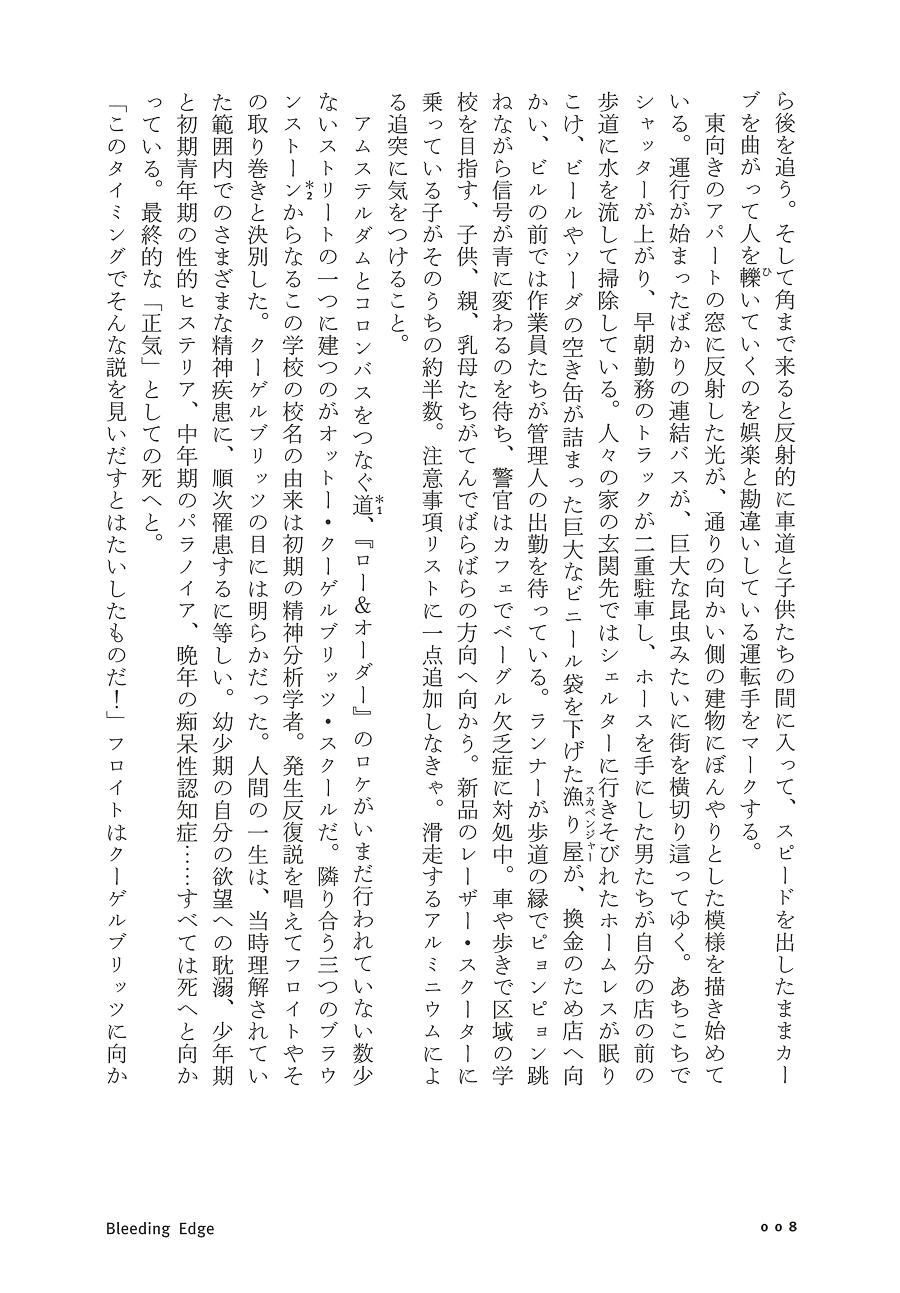 ら後を追う。そして角まで来ると反射的に車道と子供たちの間に入って、スピードを出したままカー
ブを曲がって人を轢いていくのを娯楽と勘違いしている運転手をマークする。
ひ
東向きのアパートの窓に反射した光が、通りの向かい側の建物にぼんやりとした模様を描き始めて
いる。運行が始まったばかりの連結バスが、巨大な昆虫みたいに街を横切り這ってゆく。あちこちで
シャッターが上がり、早朝勤務のトラックが二重駐車し、ホースを手にした男たちが自分の店の前の
歩道に水を流して掃除している。人々の家の玄関先ではシェルターに行きそびれたホームレスが眠り
こけ、ビールやソーダの空き缶が詰まった巨大なビニール袋を下げた漁り屋が、換金のため店へ向
スカベンジャー
かい、ビルの前では作業員たちが管理人の出勤を待っている。ランナーが歩道の縁でピョンピョン跳
ねながら信号が青に変わるのを待ち、警官はカフェでベーグル欠乏症に対処中。車や歩きで区域の学
校を目指す、子供、親、乳母たちがてんでばらばらの方向へ向かう。新品のレーザー・スクーターに
乗っている子がそのうちの約半数。注意事項リストに一点追加しなきゃ。滑走するアルミニウムによ
る追突に気をつけること。
アムステルダムとコロンバスをつなぐ道*1、『ロー&オーダー』のロケがいまだ行われていない数少
ないストリートの一つに建つのがオットー・クーゲルブリッツ・スクールだ。隣り合う三つのブラウ
ンストーン*2からなるこの学校の校名の由来は初期の精神分析学者。発生反復説を唱えてフロイトやそ
の取り巻きと決別した。クーゲルブリッツの目には明らかだった。人間の一生は、当時理解されてい
た範囲内でのさまざまな精神疾患に、順次罹患するに等しい。幼少期の自分の欲望への耽溺、少年期
と初期青年期の性的ヒステリア、中年期のパラノイア、晩年の痴呆性認知症……すべては死へと向か
っている。最終的な「正気」としての死へと。
「このタイミングでそんな説を見いだすとはたいしたものだ！」フロイトはクーゲルブリッツに向か
Bleeding Edge
008